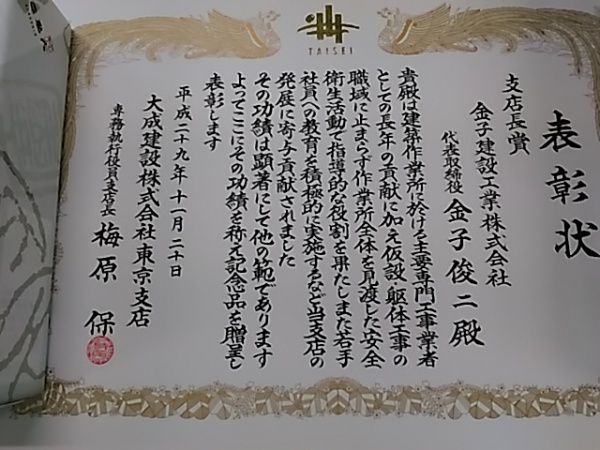 TAISEI
表彰状
支店長賞
金子建設工業株式会社
代表取締役 金子俊二殿
貴殿は建築作業所に於ける主要専門工事業者
としての長年の貢献に加え仮設・躯体工事の
職域に止まらず作業所全体を見渡した安全
衛生活動で指導的な役割を果たしまた若手
社員への教育を積極的に実施するなど当支店の
発展に寄与貢献されました
その功績は顕著にして他の範であります
よってここにその功績を称え記念品を贈呈し
表彰します
平成二十九年十一月二十日
大成建設株式会社東京支店
専務執行役員支店長 梅原 保